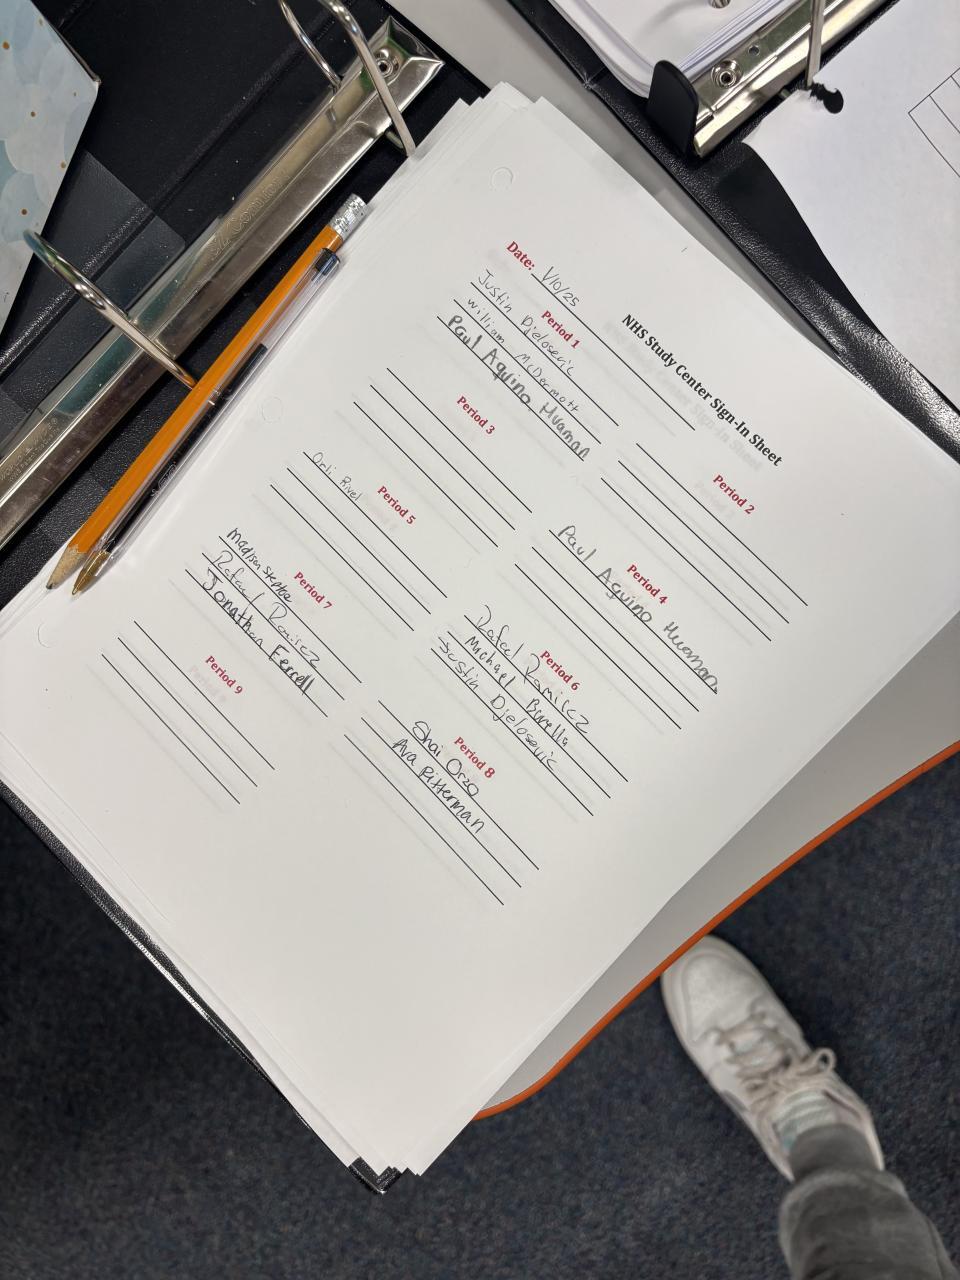 NHS Study Center Sign-In Sheet
Date: 1/10/25
Period 1
Justin Djelosevic
William McDermott
Paul Aquino Huaman
Period 2
Period 3
Period 4
Paul Aquino Huaman
Period 5
Orli Rivel
Period 6
Rafael Ramirez
Michael Burella
Justin Djelosevic
Period 7
Madison
Rafael Ramirez
Jonathan Ferrell
Period 8
Shai Orzo
Ava Pitterman
Period 9